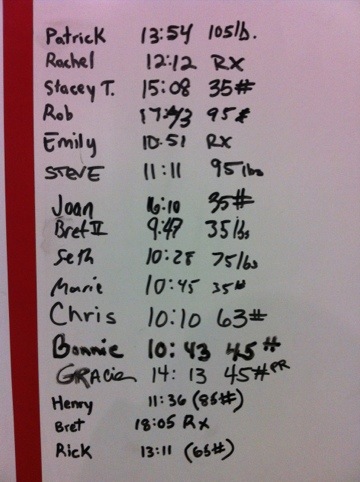 Patrick 13:54 105lb.
Rachel 12:12 RX
Stacey T. 15:08 35#
Rob 17:43 95#
Emily 10:51 RX
STEVE 11:11 95lbs
Joan 16:10 35#
Bret II 9:47 35lbs
Seth 10:28 75lbs
Marie 10:45 35#
Chris 10:10 63#
Bonnie 10:43 45#
GRACie 14:13 45# PR
Henry 11:36 (85#)
Bret 18:05 Rx
Rick 13:11 (65#)